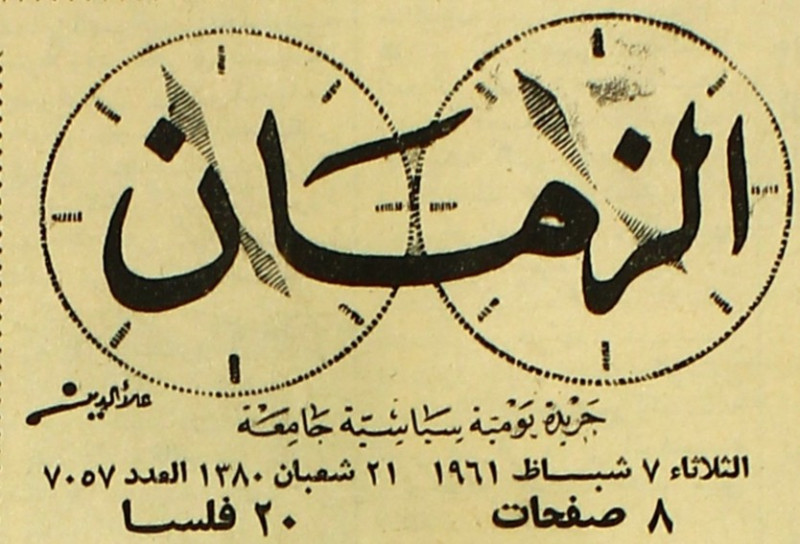 الزمان
علاء الدين
جريدة يومية سياسية جامعة
الثلاثاء ٧ شباط ١٩٦١ ٢١ شعبان ١٣٨٠ العدد ٧٠٥٧
٨ صفحات ٢٠ فلسا